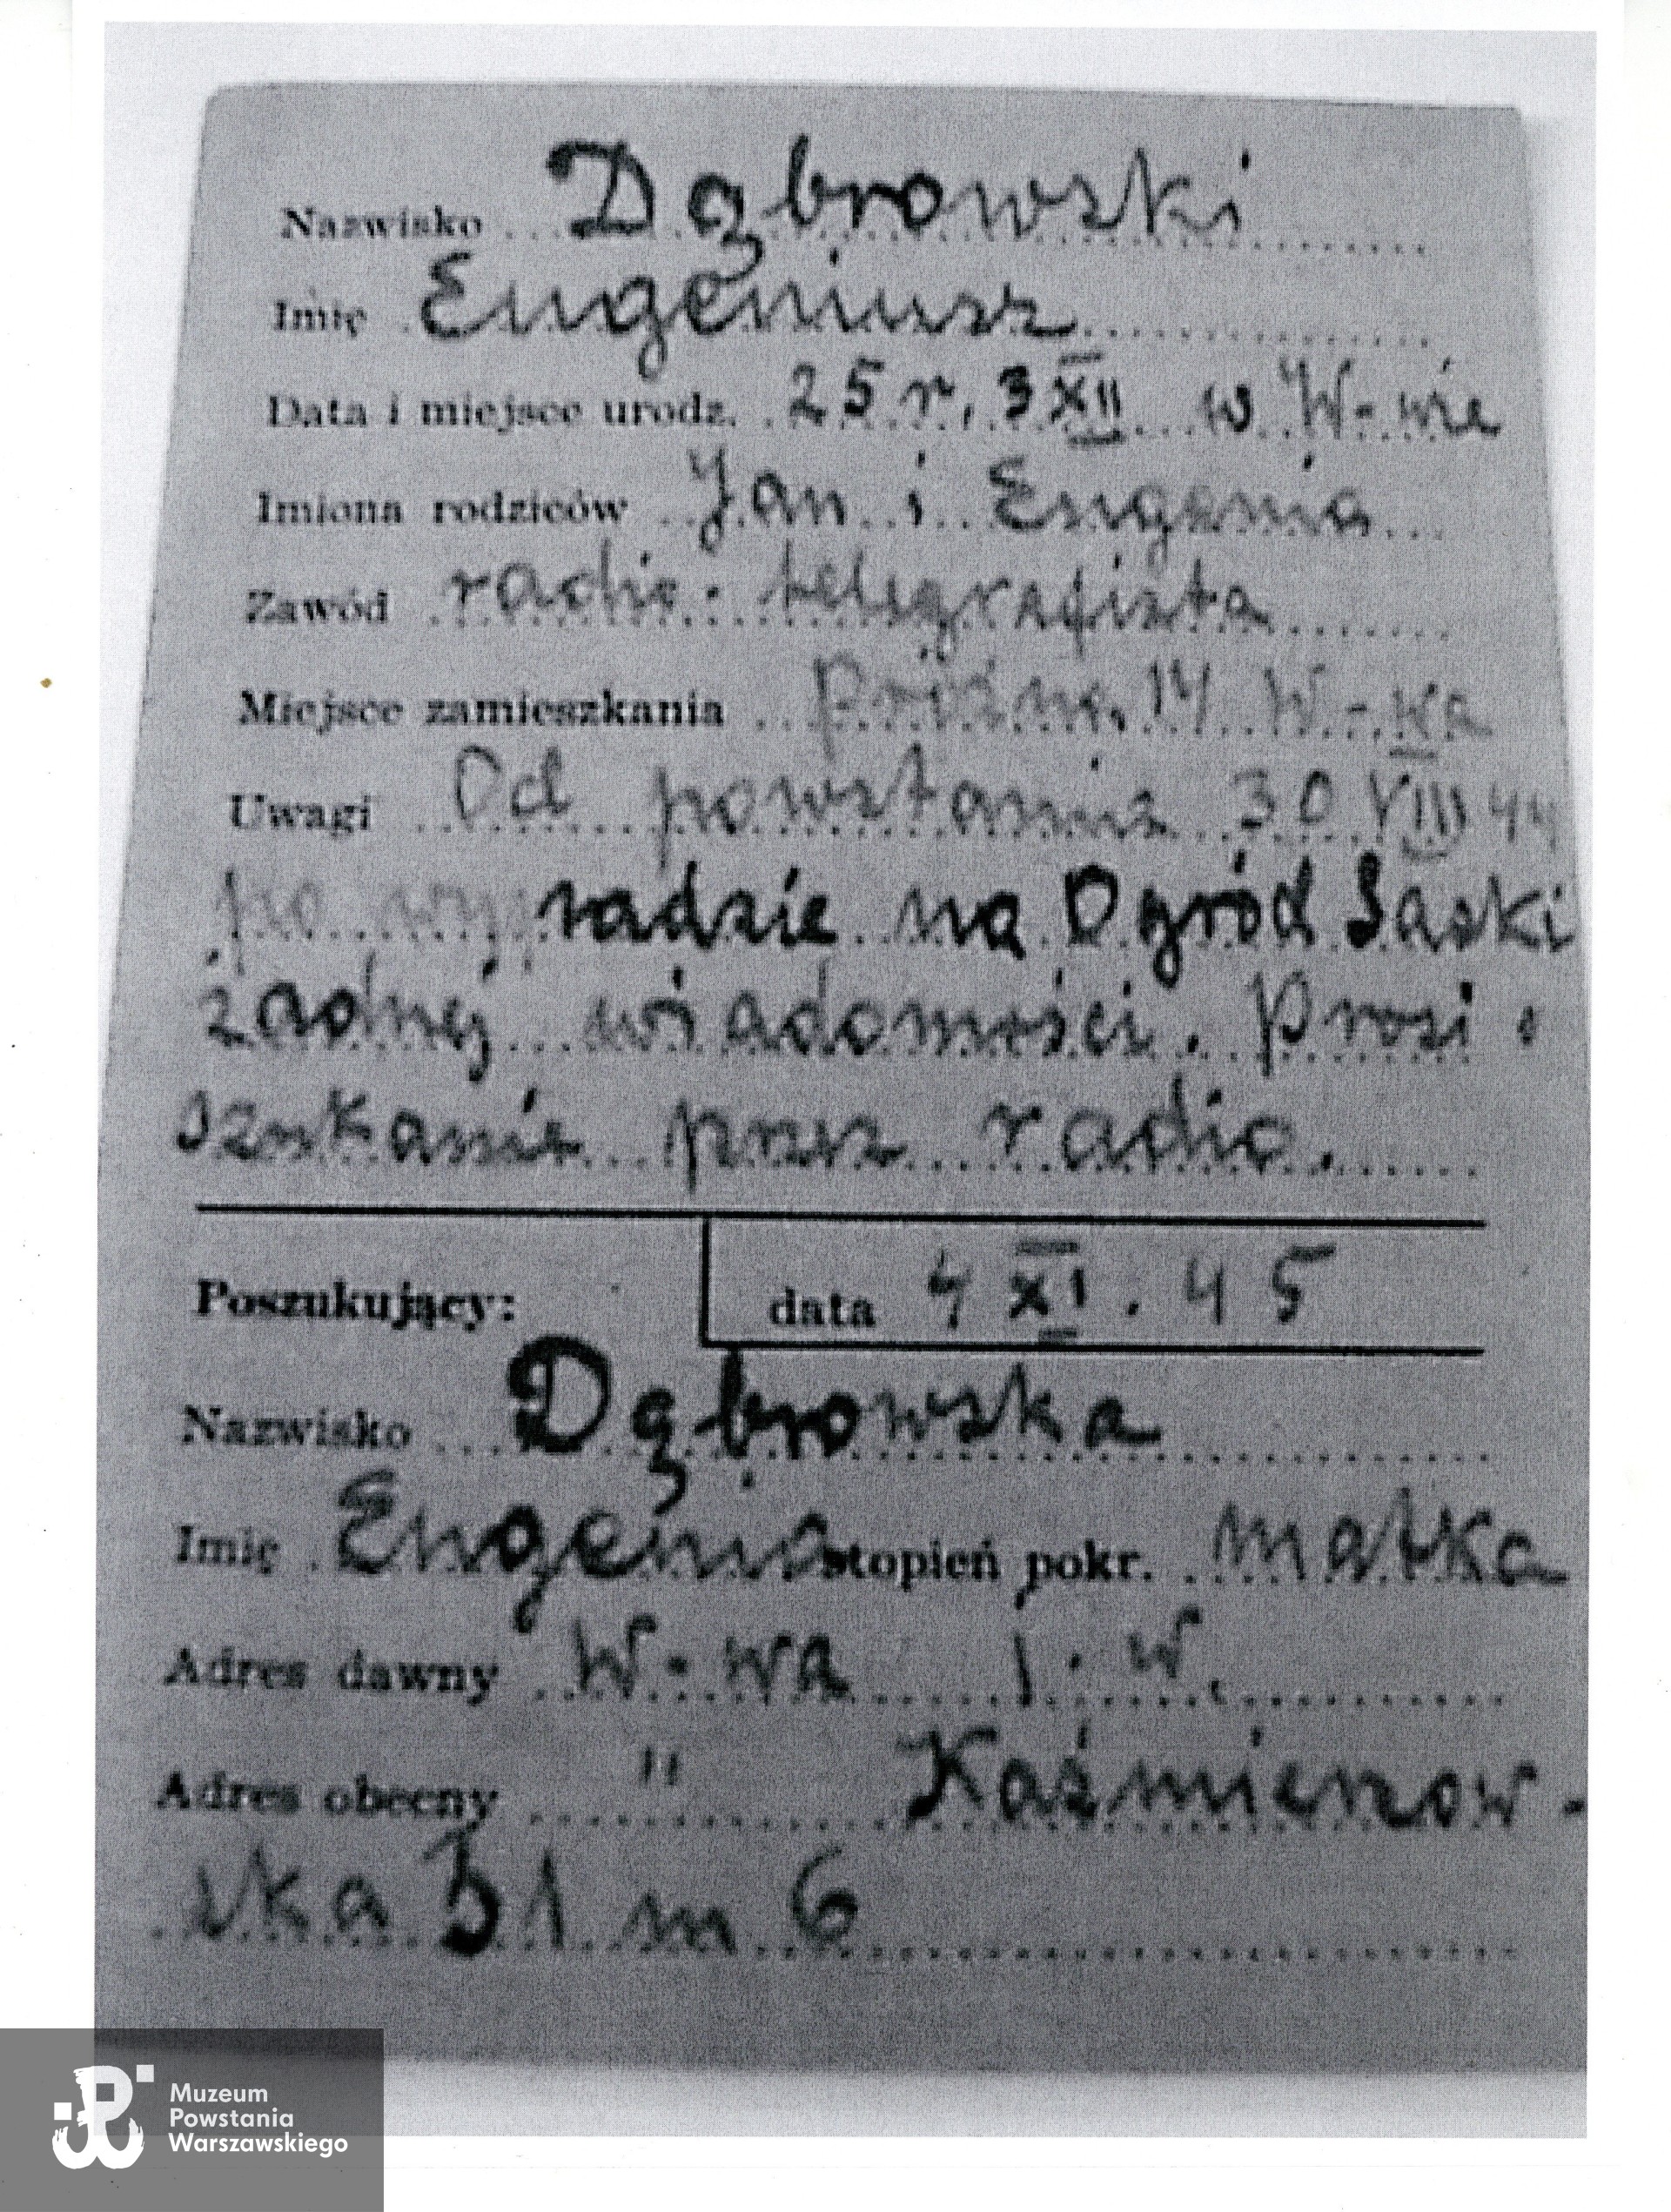 Nazwisko Dąbrowski
Imię Eugeniusz
Data i miejsce urodz. 25 r. 3 XII w W-wie
Imiona rodziców Jan i Eugenia
Zawód radio-telegrafista
Miejsce zamieszkania 14 W-wa
Uwagi Od powstania 30 VIII 44
po na Ogród Saski
żadnej wiadomości. Prosi o
szukanie przez radio.
Poszukujący: data 4 XI. 45
Nazwisko Dąbrowska
Imię Eugenia stopień pokr. matka
Adres dawny W-wa j. w.
Adres obecny " Kaźmierzow-
ska 51 m 6
Muzeum
Powstania
Warszawskiego